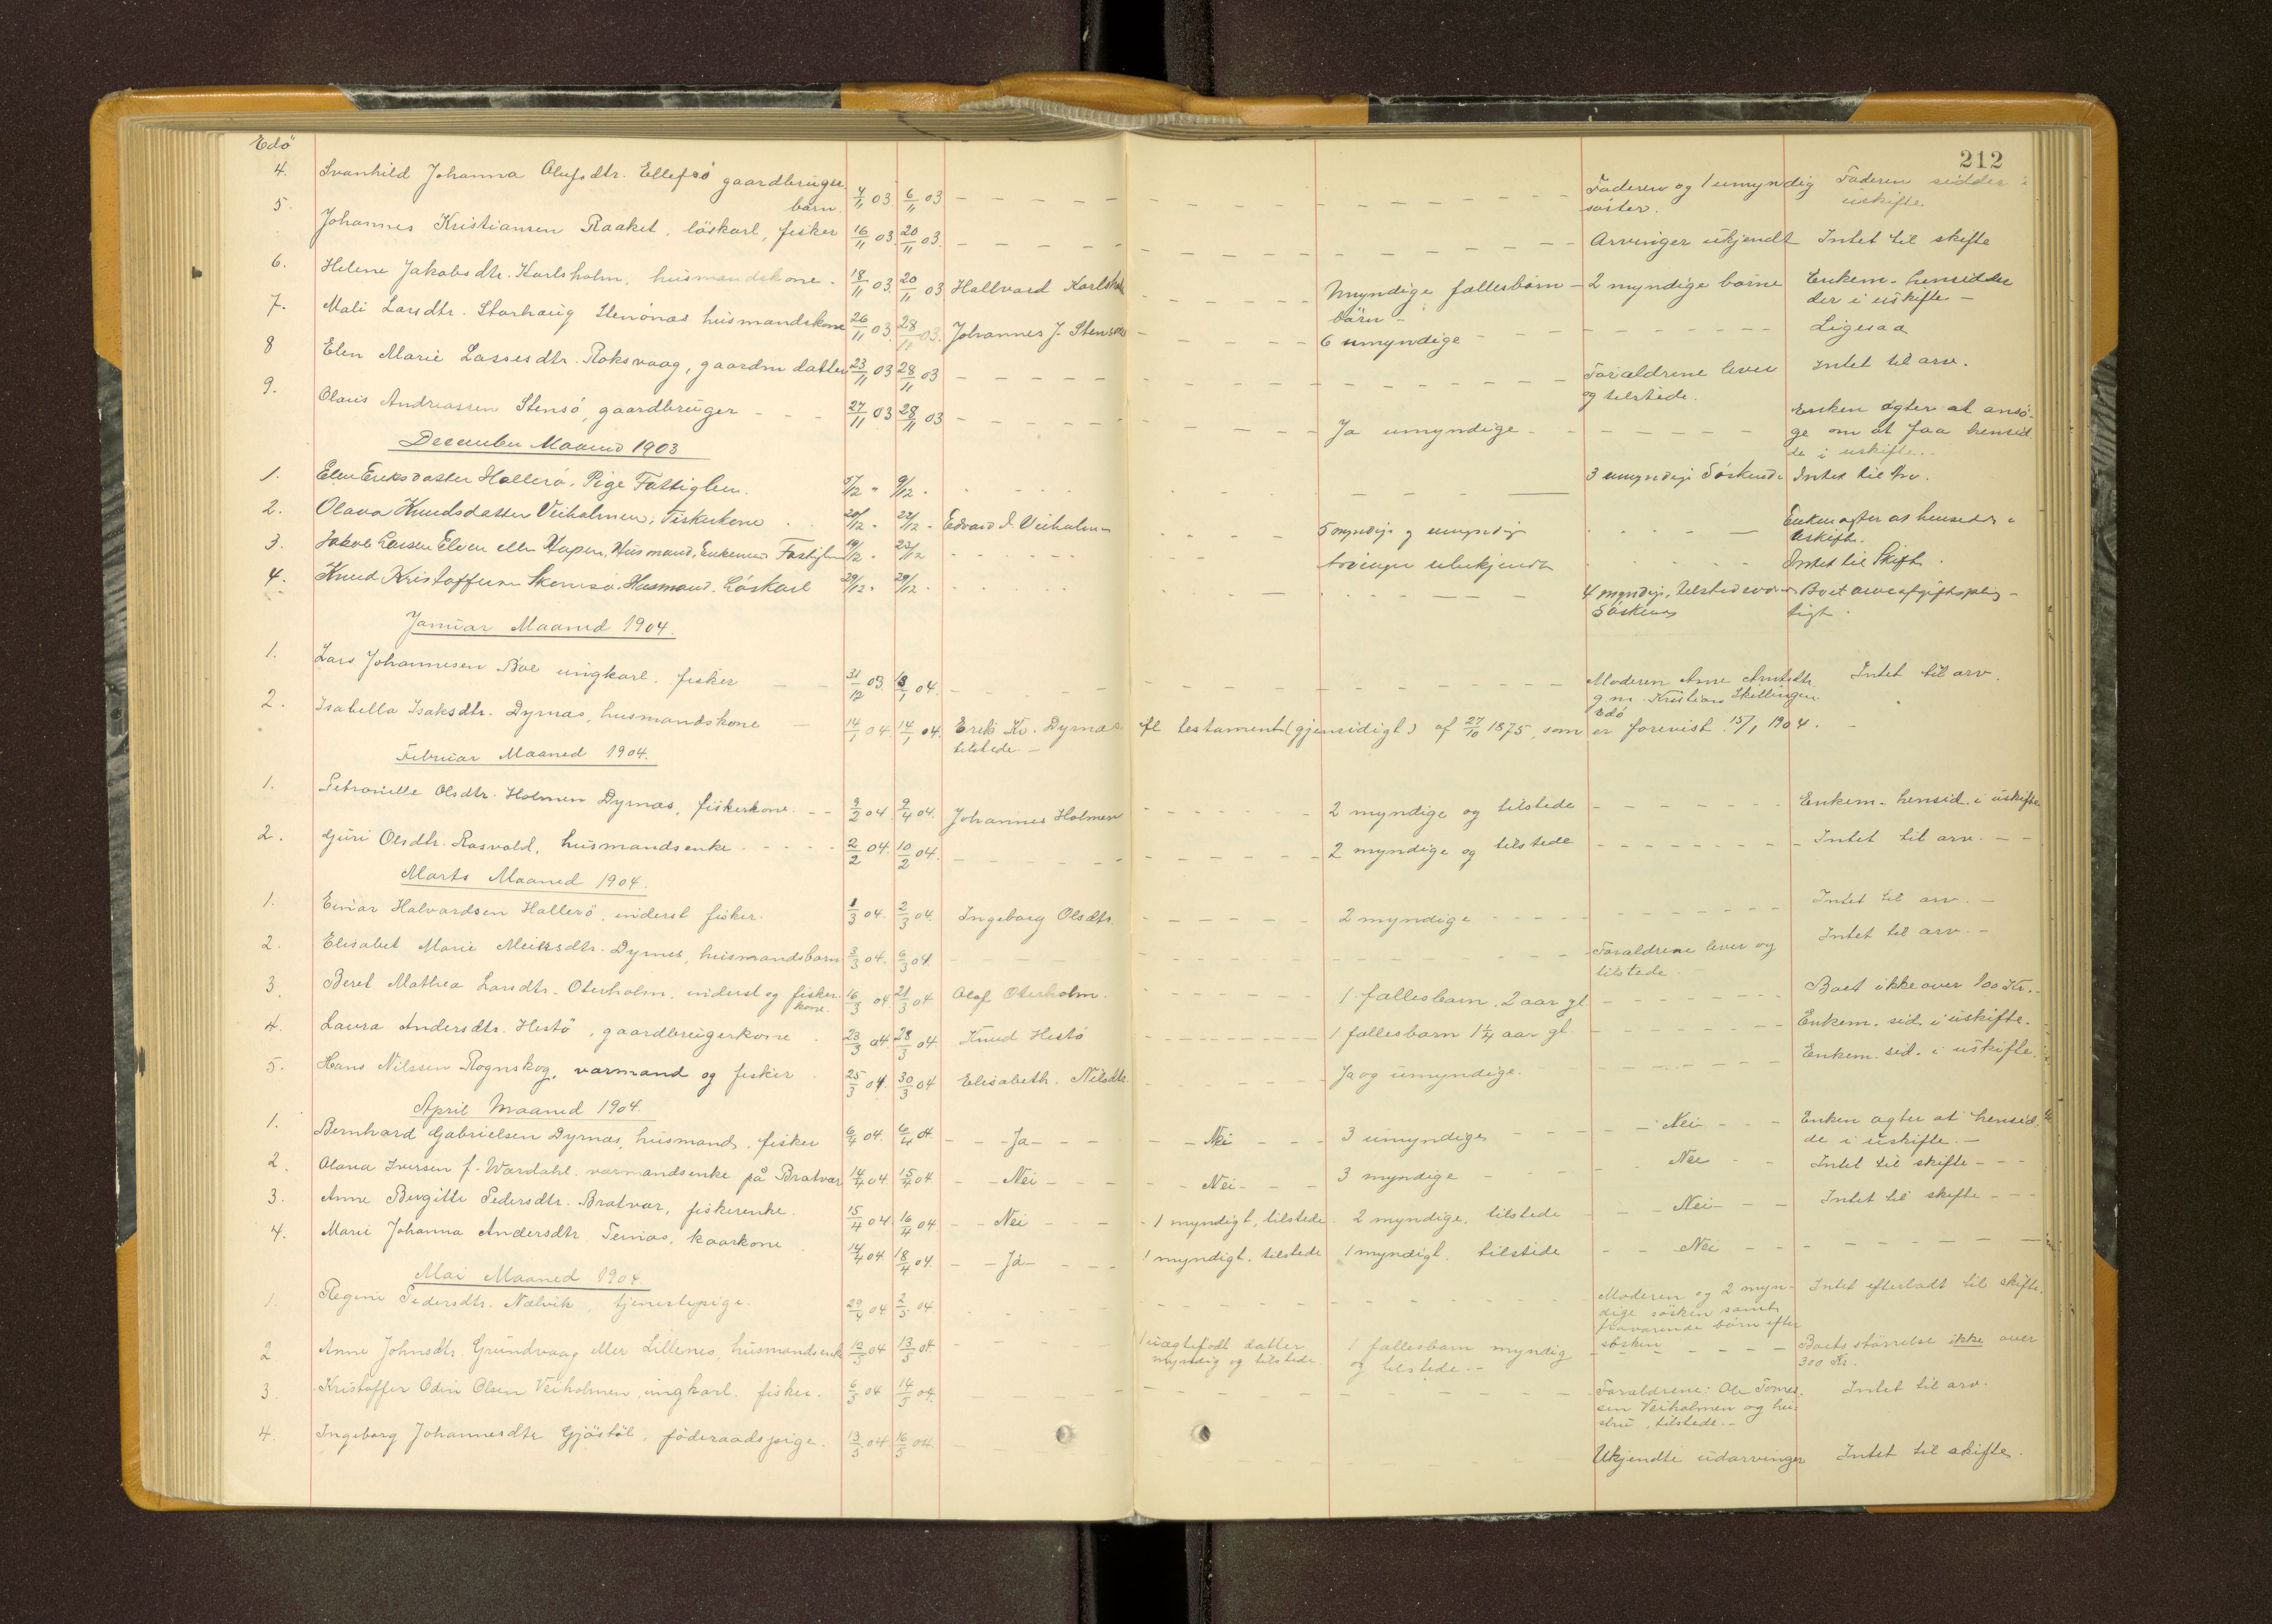 Edö
212
4. Svanhild Johanna Olufsdtr. Ellefsö gaardbruger 4/11 03 6/11 03 Faderen og 1 umyndig Faderen sidder i
barn. söster. uskifte
5. Johannes Kristiansen Raaket, löskarl, fisker 16/11 03. 20/11 03. Arvinger ukjendt Intet til skifte
6. Helene Jakobsdtr. Karlsholm, husmandskone. 18/11 03. 20/11 03 Hallvard Karlsholm Umyndige fællesbörn 2 myndige börne Enkem. hensidder
börn - der i uskifte -
7. Mali Larsdtr. Storhaug Stenönas husmandskone 26/11 03. 28/11 03. Johannes J. 6 umyndige Ligesaa
8 Elen Marie Lassesdtr. Roksvaag, gaardm datter 23/11 03 28/11 03 Forældrene lever Intet til arv.
og tilstede.
9. Olaus Andreassen Stensö, gaardbruger 27/11 03 28/11 03 Ja umyndige Enken agter at ansö-
ge om at faa hensid-
de i uskifte.
December Maaned 1903
1. Elen Eriksdatter Hallerö, Pige Fattiglem. 5/12 " 9/12 " 3 umyndige Söskende Intet til Arv.
2. Olava Knudsdatter Veiholmen, Fiskerkone 20/12 " 22/12 " Edvard I. Veiholmen 5 myndige og umyndige Enkem agter at hensidde i
uskifte.
3. Jakob Larsen Elven eller Hapen, Husmand, Enkemand Fattiglem 19/12 " 22/12 Arvinger ubekjendt Intet til Skifte.
4. Knud Kristoffersen Skomsö, Husmand. Löskarl 29/12 " 29/12 " 4 myndige, tilstedeværende Boet arveafgiftsplig-
Söskend tigt.
Januar Maaned 1904.
1. Lars Johannesen Boe ungkarl. fisker 31/12 03. 13/1 04. Moderen Ane Arntsdtr. Intet til arv.
g. m. Kristian Skillingen
Edö
2. Isabella Isaksdtr. Dyrnas, husmandskone 14/1 04. 14/1 04. Erik Kr. Dyrnas fl testament (gjensidigt) af 27/10 1875, som er forevist 15/1 1904. -
tilstede. -
Februar Maaned 1904.
1. Petronille Olsdtr. Holmen Dyrnas, fiskerkone. 9/2 04. 9/4 04. Johannes Holmen 2 myndige og tilstede Enkem. hensid. i uskifte
2. Guri Olsdtr. Rosvold, husmandsenke 2/2 04. 10/2 04. 2 myndige og tilstede Intet til arv.
Marts Maaned 1904.
1. Einar Halvardsen Hallerö, inderst fisker. 1/3 04. 2/3 04. Ingeborg Olsdtr. 2 myndige Intet til arv. -
2. Elisabet Marie Meiersdtr. Dyrnes, husmandsbarn 3/3 04. 6/3 04. Forældrene lever og Intet til arv. -
tilstede
3. Beret Mathea Larsdtr. Oterholm, inderst og fisker- 16/3 04 21/3 04 Olaf Oterholm. 1 fællesbarn, 2 aar gl. Boet ikke over 100 Kr.
kone.
4. Laura Andersdtr. Hestö, gaardbrugerkone 23/3 04 28/3 04. Knud Hestö 1 fællesbarn 1 1/4 aar gl. Enkem. sid. i uskifte.
5. Hans Nilssen Rognskog, varmand og fisker 25/3 04. 30/3 04 Elisabeth. Nilsdtr. Ja og umyndige. Enkem. sid. i uskifte.
April Maaned 1904.
1. Bernhard Gabrielsen Dyrnas, husmand, fisker 6/4 04. 6/4 04. - - Ja - - Nei 3 umyndige Nei Enken agter at hensid-
de i uskifte. -
2. Olava Iversen f. Wardahl. varmandsenke på Bratvar 14/4 04 15/4 04 - - Nei - Nei - 3 myndige Nei Intet til skifte
3. Anne Birgitte Pedersdtr. Bratvar, fiskerenke. 15/4 04. 16/4 04 - - Nei 1 myndigt, tilstede 2 myndige, tilstede Nei Intet til skifte
4. Marie Johanna Andersdtr. Teinas. kaarkone 14/4 04. 18/4 04. - - Ja - 1 myndigt. tilstede 1 myndigt. tilstede Nei
Mai Maaned 1904.
1. Regine Pedersdtr. Nalvik, tjenestepige. 29/4 04 2/5 04. Moderen og 2 myn- Intet efterladt til skifte.
dige sösken samt
fraværende börn efter
sösken
2 Anne Johnsdtr. Grundvaag eller Lillenes, husmandsenke 12/5 04 13/5 04. 1 uægtefödt datter 1 fællesbarn myndig Boets störrelse ikke over
myndig og tilstede. og tilstede. - 300 Kr.
3 Kristoffer Odin Olsen Veiholmen, ungkarl. fisker. 6/5 04 14/5 04. Forældrene: Ole Tomes- Intet til arv.
sen Veiholmen og hu-
stru, tilstede. -
4. Ingeborg Johannesdtr Gjöstöl, föderaadspige. 13/5 04 16/5 04 Ukjendte udarvinger Intet til skifte.